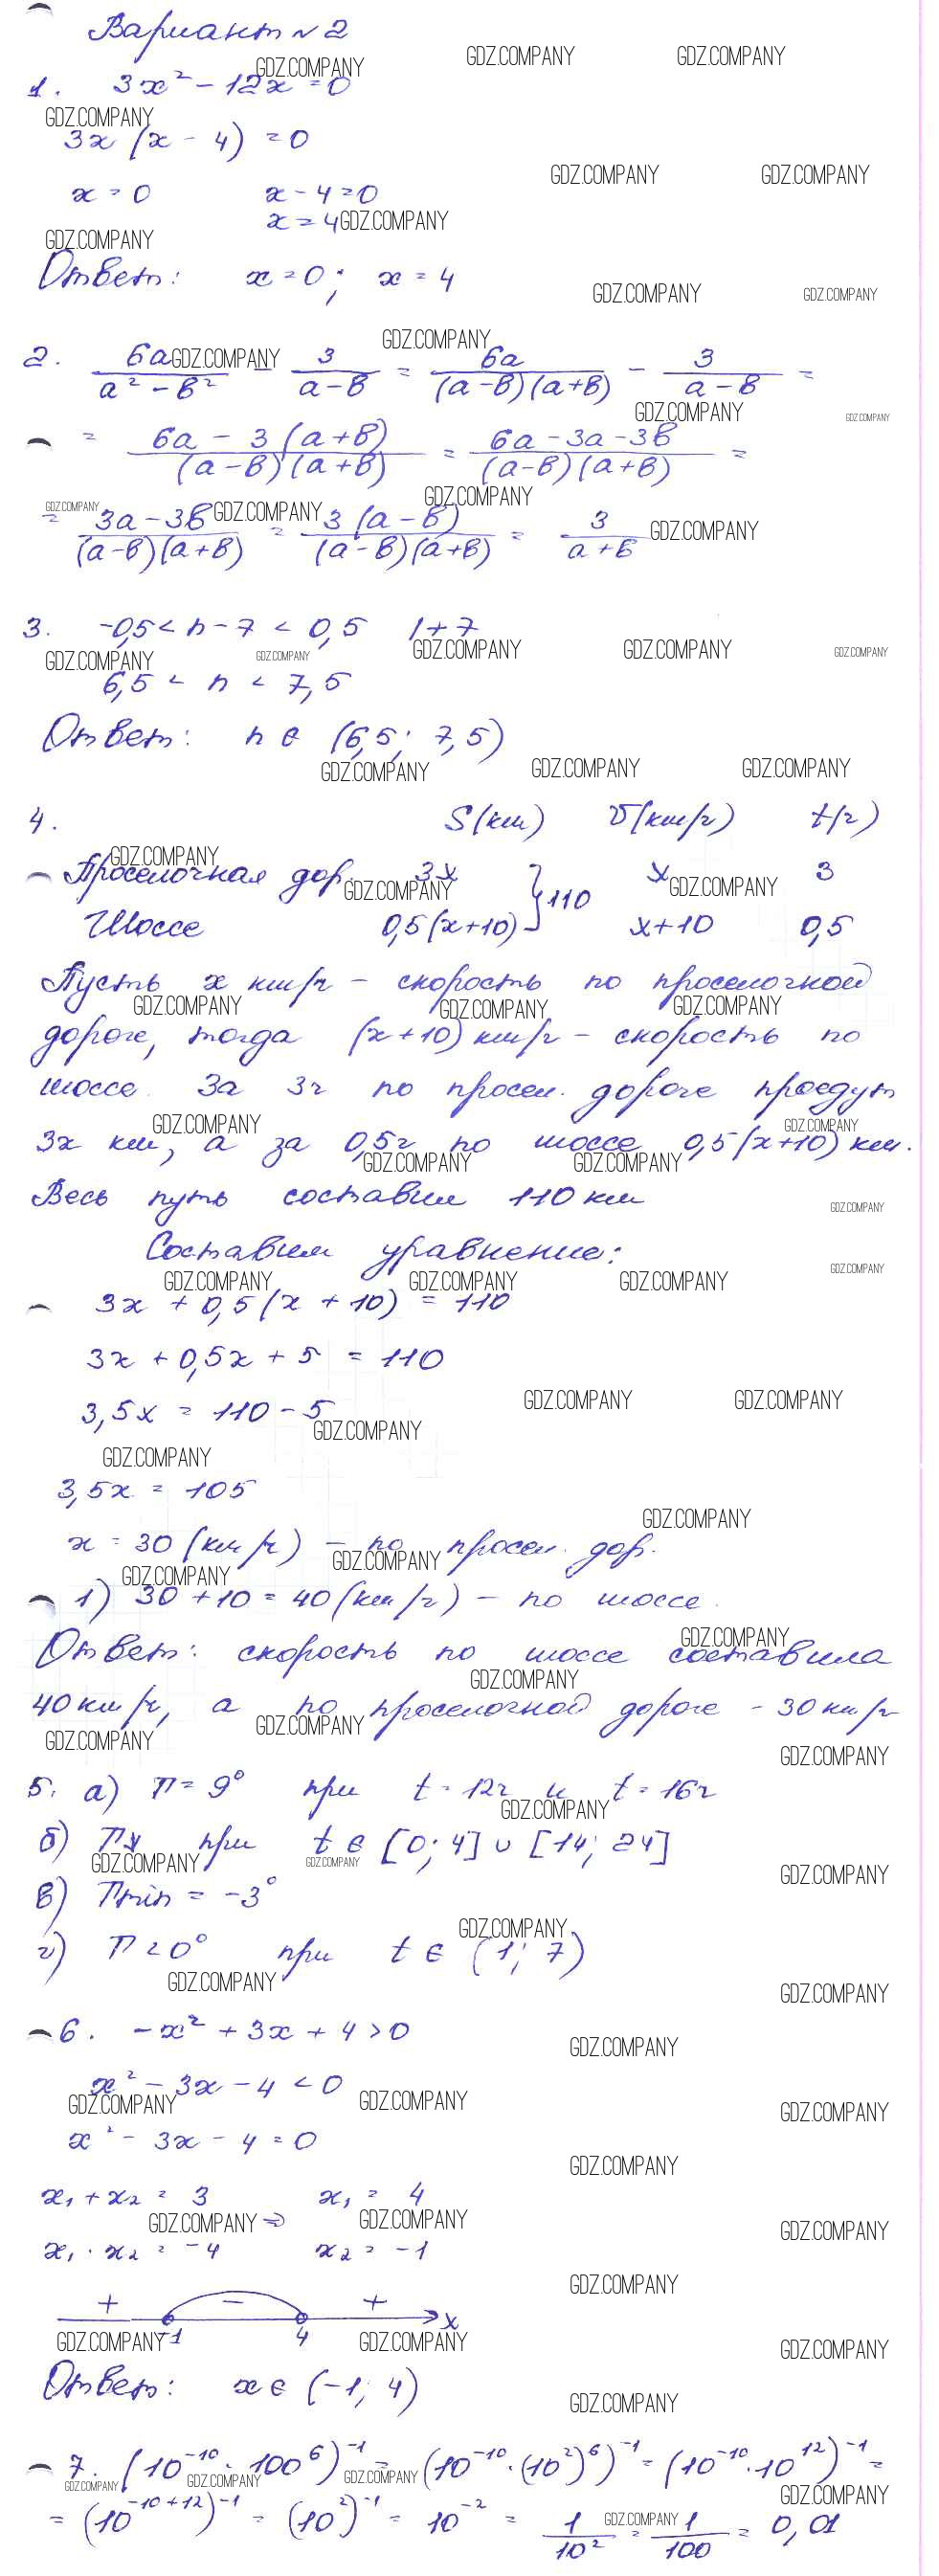 Вариант №2
1. 3x² - 12x = 0
3x (x - 4) = 0
x = 0 x - 4 = 0
x = 4
Ответ: x = 0; x = 4
2. 6a/(a² - в²) - 3/(a - в) = 6a/((a - в)(a + в)) - 3/(a - в) =
= (6a - 3(a + в))/((a - в)(a + в)) = (6a - 3a - 3в)/((a - в)(a + в)) =
= (3a - 3в)/((a - в)(a + в)) = 3(a - в)/((a - в)(a + в)) = 3/(a + в)
3. -0,5 < n - 7 < 0,5 | + 7
6,5 < n < 7,5
Ответ: n ∈ (6,5; 7,5)
4. S(км) v(км/ч) t(ч)
Проселочная дор. 3x } 110 x 3
Шоссе 0,5(x+10) x+10 0,5
Пусть x км/ч - скорость по проселочной
дороге, тогда (x+10) км/ч - скорость по
шоссе. За 3ч по просел. дороге проедут
3x км, а за 0,5ч по шоссе 0,5(x+10) км.
Весь путь составил 110 км
Составим уравнение:
3x + 0,5(x + 10) = 110
3x + 0,5x + 5 = 110
3,5x = 110 - 5
3,5x = 105
x = 30 (км/ч) - по просел. дор.
1) 30 + 10 = 40 (км/ч) - по шоссе.
Ответ: скорость по шоссе составила
40 км/ч, а по проселочной дороге - 30 км/ч
5. а) T = 9° при t = 12ч и t = 16ч
б) T↓ при t ∈ [0; 4] ∪ [14; 24]
в) Tmin = -3°
г) T < 0° при t ∈ (1; 7)
6. -x² + 3x + 4 > 0
x² - 3x - 4 < 0
x² - 3x - 4 = 0
x₁ + x₂ = 3 x₁ = 4
⇒
x₁ · x₂ = -4 x₂ = -1
+ - +
-1 4 x
Ответ: x ∈ (-1; 4)
7. (10⁻¹⁰ · 100⁶)⁻¹ = (10⁻¹⁰ · (10²)⁶)⁻¹ = (10⁻¹⁰ · 10¹²)⁻¹ =
= (10⁻¹⁰⁺¹²)⁻¹ = (10²)⁻¹ = 10⁻² = 1/10² = 1/100 = 0,01
GDZ.COMPANY